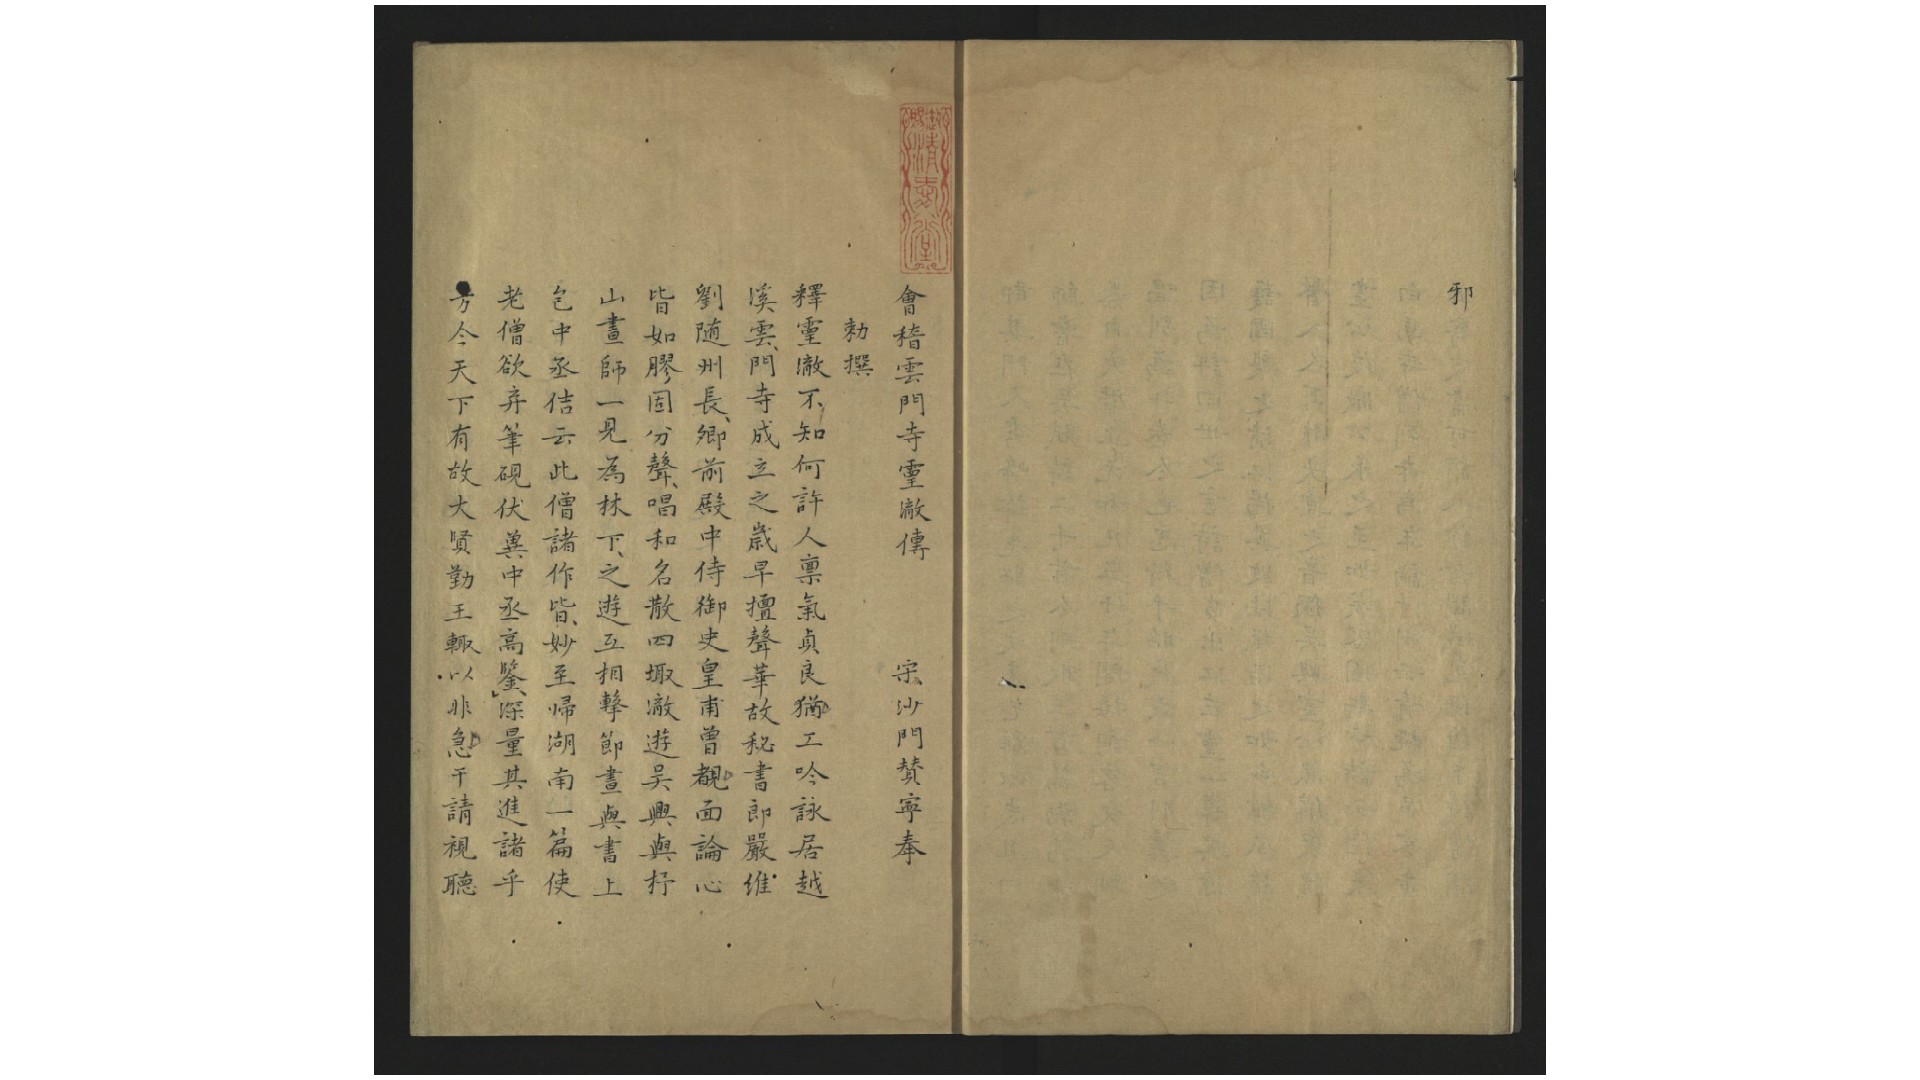 邪
會稽雲門寺靈澈傳　宋沙門贊寧奉
勅撰
釋靈澈不知何許人稟氣貞良猶工吟詠居越
溪雲門寺成立之歲早擅聲華故秘書郎嚴維
劉隨州長卿前殿中侍御史皇甫曾覩面論心
皆如膠固分聲唱和名散四陬澈遊吳興與杼
山晝師一見為林下之遊互相擊節晝與書上
包中丞佶云此僧諸作皆妙至帰湖南一篇使
老僧欲弃筆硯伏冀中丞高鑒深量其進諸乎
方今天下有故大賢勤王輙以非急干請視聽